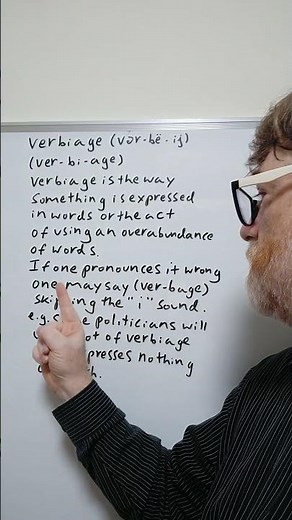 verbiage (vər-bē-ij)
(ver-bi-age)
Verbiage is the way
something is expressed
in words or the act
of using an overabundance
of words.
If one pronounces it wrong
one may say (ver-bage)
skipping the "i" sound.
e.g. politicians will
of verbiage
nothing